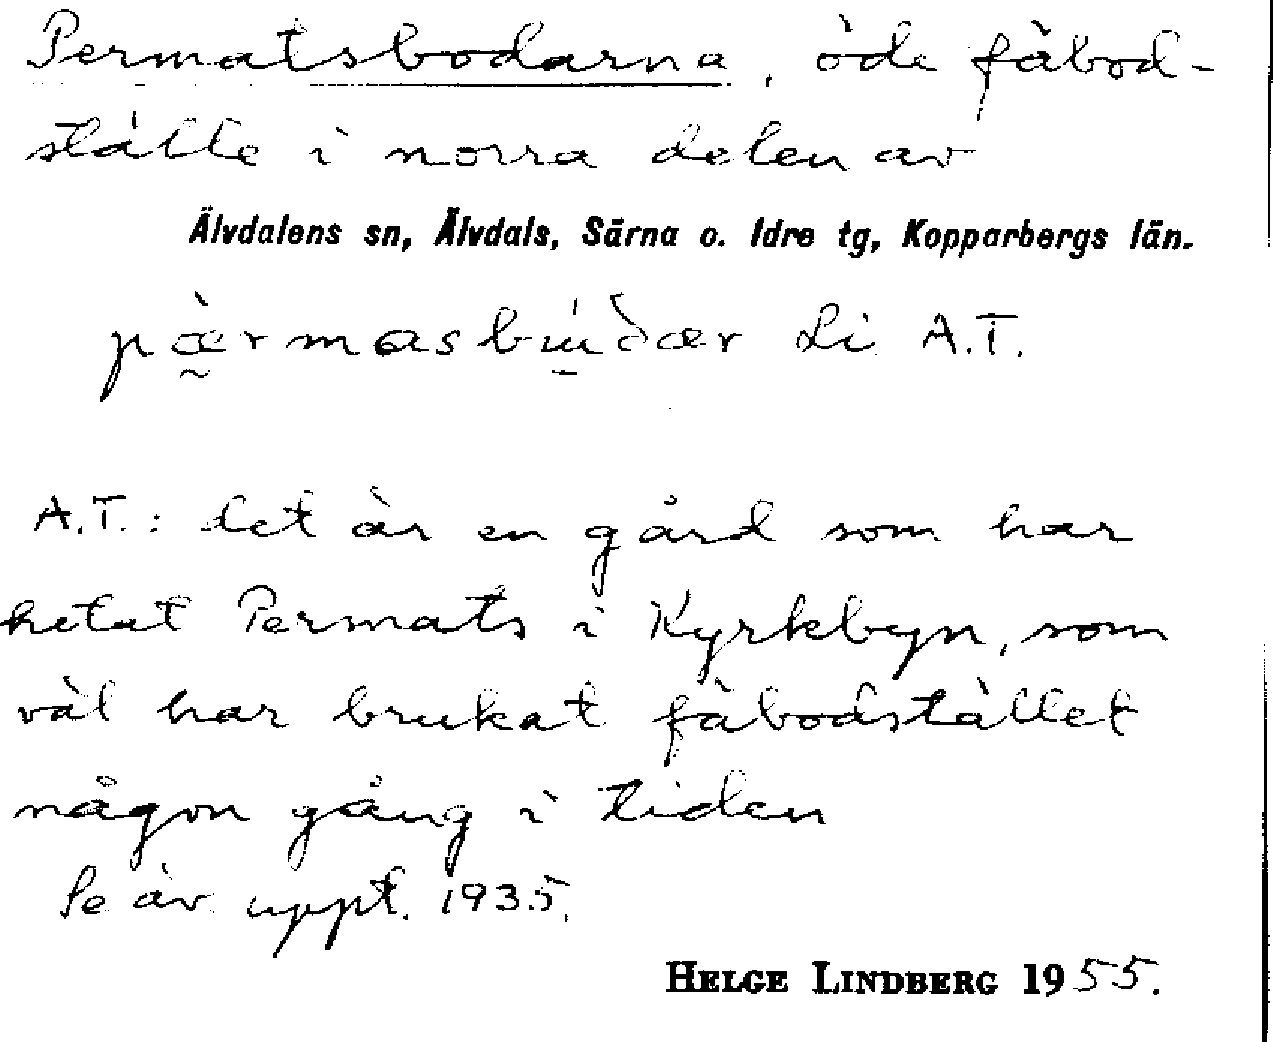 Permatsbodarna, öde fäbod-
ställe i norra delen av
Älvdalens sn, Älvdals, Särna o. Idre tg, Kopparbergs län.
A.T.
A.T.: det är en gård som har
hetat Permats i Kyrkbyn, som
väl har brukat fäbodstället
någon gång i tiden
Se äv. uppt. 1935.
HELGE LINDBERG 1955.